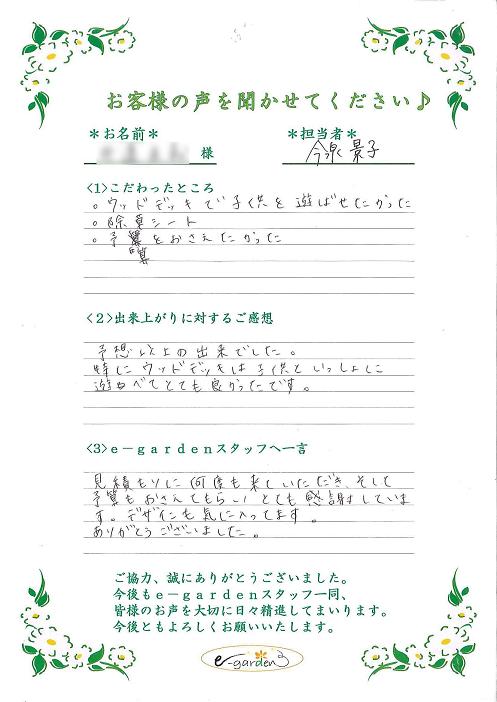 お客様の声を聞かせてください♪
＊お名前＊
＊担当者＊
様
今泉 景子
<1>こだわったところ
○ ウッドデッキで子供を遊ばせたかった
○ 除草シート
○ 予算をおさえたかった
算
<2>出来上がりに対するご感想
予想以上の出来でした。
特にウッドデッキは子供といっしょに
遊べてとても良かったです。
<3>e－gardenスタッフへ一言
見積もりに何度も来ていただき、そして
予算もおさえてもらい とても感謝していま
す。デザインも気に入ってます。
ありがとうございました。
ご協力、誠にありがとうございました。
今後もe－gardenスタッフ一同、
皆様のお声を大切に日々精進してまいります。
今後ともよろしくお願いいたします。
e-garden